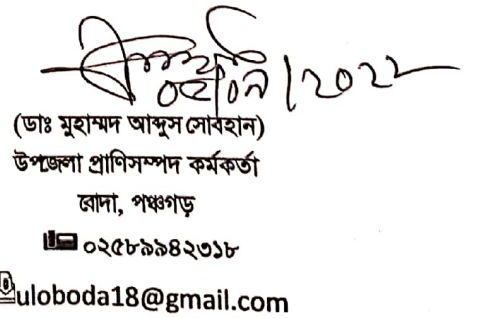 (ডাঃ মুহাম্মদ আব্দুস সোবহান)
উপজেলা প্রাণিসম্পদ কর্মকর্তা
বোদা, পঞ্চগড়
০২৫৮৯৯৪২৩১৮
uloboda18@gmail.com